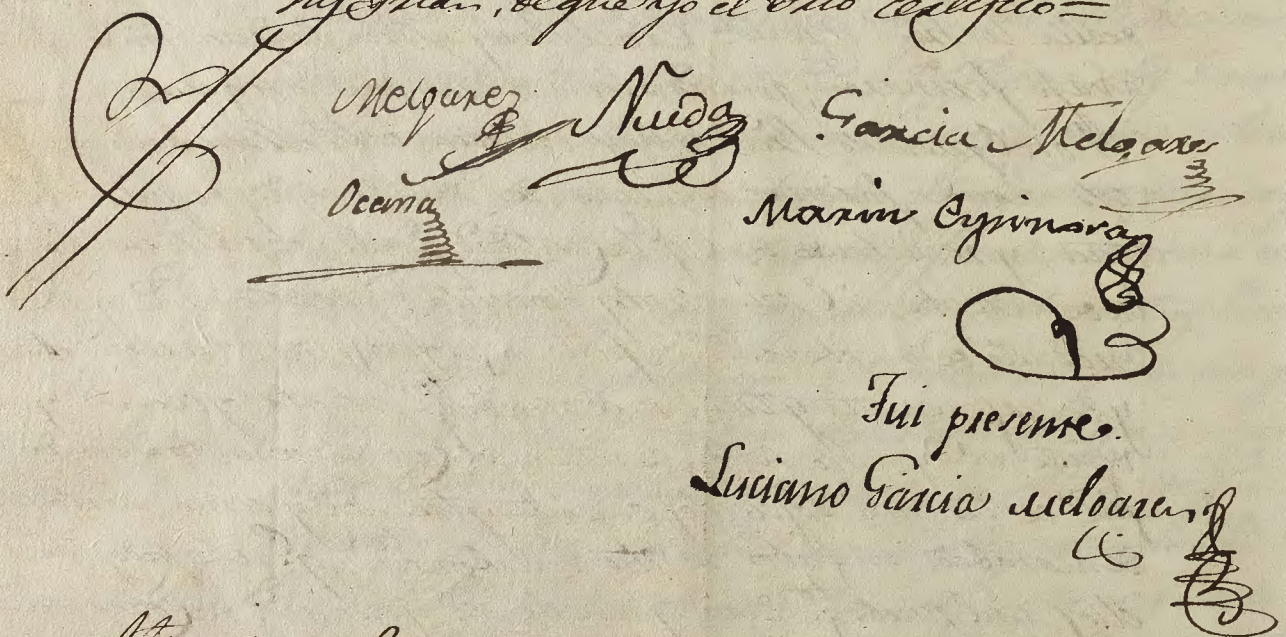 de que yo el Essno certifico=
Melgarez Rueda Garcia Melgares
Ocaña Marin Espinosa
Fui presente.
Luciano Garcia Melgares